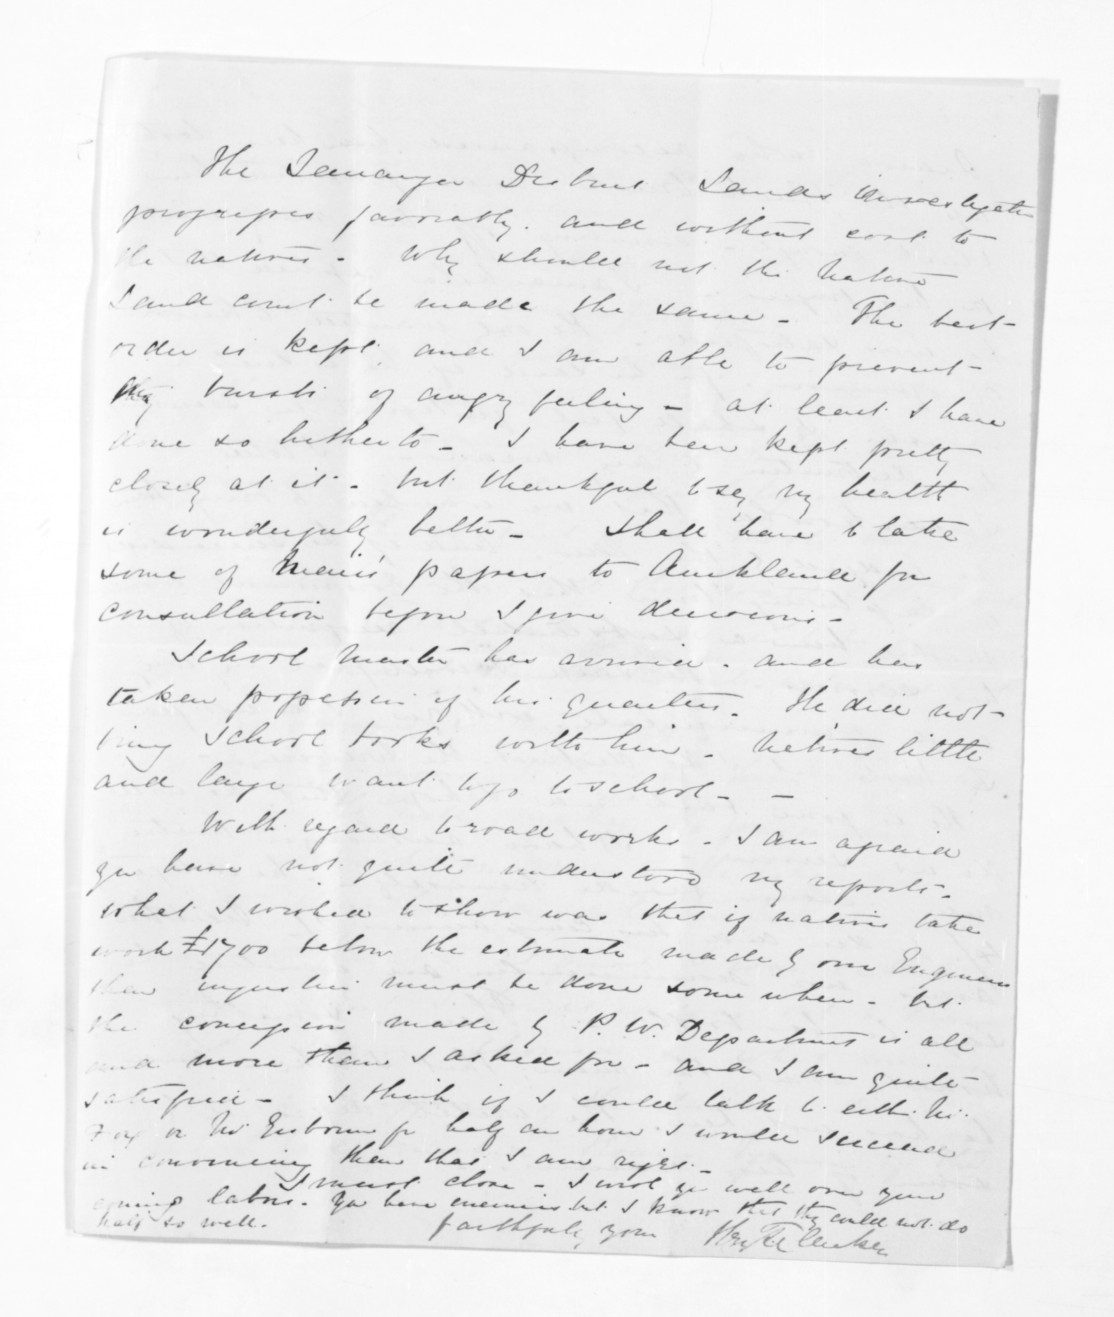 The Tauranga District Lands investigation
progresses favorably. and without cost to
the natives - Why should not the Native
Land Court be made the same - The best
order is kept, and I am able to prevent
any bursts of angry feeling - at least I have
done so hitherto - I have been kept pretty
closely at it - but thankful to say my health
is wonderfully better - Shall have to take
some of Mair's papers to Auckland for
consultation before I give decisions -
School Master has arrived - and has
taken possession of his quarters. He did not
bring School books with him - Natives little
and large want to go to school - -
With regard to road works - I am afraid
you have not quite understood my reports -
what I wished to show was that if natives take
work £1700 below the estimate made by our Engineers
then injustice must be done some where - but
the concession made by P. W. Department is all
and more than I asked for - and I am quite
satisfied - I think if I could talk to either Mr.
Fox or Mr Gisborne for half an hour I would succeed
in convincing them that I am right -
I must close - I wish you well over your
coming labors. You have enemies but I know that they could not do
half so well.
faithfully yours Hry T Clarke